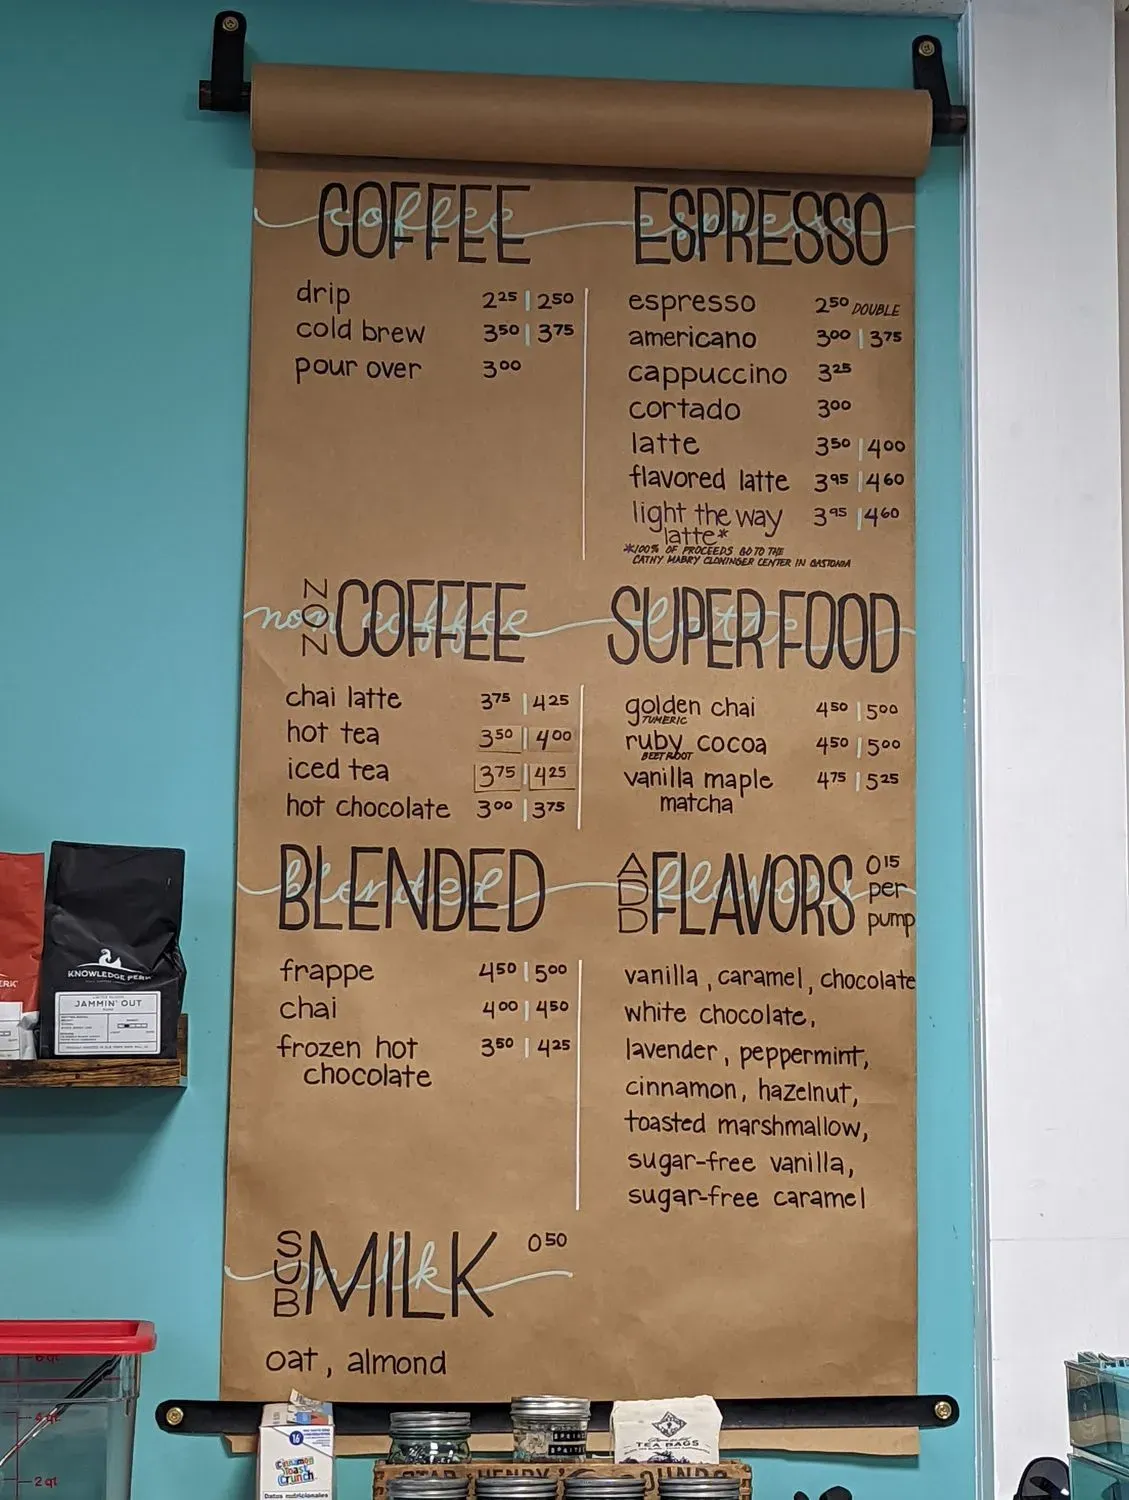 COFFEE
coffee
drip 2²⁵ | 2⁵⁰
cold brew 3⁵⁰ | 3⁷⁵
pour over 3⁰⁰
ESPRESSO
espresso
espresso 2⁵⁰ DOUBLE
americano 3⁰⁰ | 3⁷⁵
cappuccino 3²⁵
cortado 3⁰⁰
latte 3⁵⁰ | 4⁰⁰
flavored latte 3⁹⁵ | 4⁶⁰
light the way 3⁹⁵ | 4⁶⁰
latte*
*100% OF PROCEEDS GO TO THE
CATHY MABRY CLONINGER CENTER IN GASTONIA
NON COFFEE
non coffee
chai latte 3⁷⁵ | 4²⁵
hot tea 3⁵⁰ | 4⁰⁰
iced tea 3⁷⁵ | 4²⁵
hot chocolate 3⁰⁰ | 3⁷⁵
SUPER FOOD
latte
golden chai 4⁵⁰ | 5⁰⁰
TUMERIC
ruby cocoa 4⁵⁰ | 5⁰⁰
BEET ROOT
vanilla maple 4⁷⁵ | 5²⁵
matcha
BLENDED
blended
frappe 4⁵⁰ | 5⁰⁰
chai 4⁰⁰ | 4⁵⁰
frozen hot 3⁵⁰ | 4²⁵
chocolate
ADD FLAVORS 0¹⁵ per pump
flavors
vanilla, caramel, chocolate
white chocolate,
lavender, peppermint,
cinnamon, hazelnut,
toasted marshmallow,
sugar-free vanilla,
sugar-free caramel
SUB MILK 0⁵⁰
milk
oat, almond
KNOWLEDGE PERK
JAMMIN' OUT
6 qt
4 qt
2 qt
16
Cinnamon
Toast
Crunch
Datos nutricionales
TEA BAGS